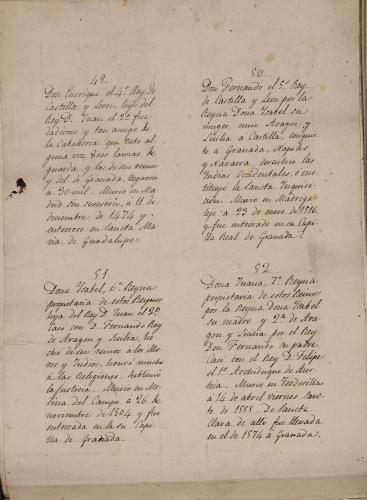 49.
Don Enrrique el 4º Rey de
Castilla y Leon, hijo del
Rey D. Juan el 2º fue
dadivoso y tan amigo de
la Caballeria que trato al
guna voz 3000 lanzas de
guarda, y las de sus reinos
y del d Granada, llegaron
à 30 mil. Murio en Ma
drid sin sucesion, à 11 de
diciembre de 1474 y
enterrose en Sancta Ma
ria de Guadalupe.
50.
Don Fernando el 5º Rey
de Castilla y Leon por la
Reyna Doña Isabel su
muger, unio Aragon y
Sicilia à Castilla, conquis
to à Granada, Napoles
y Navarra, descubrio las
Indias Occidentales, é ins
tituyo la Sancta Inquisi
cion. Murio en Madriga
lejo à 23 de enero de 1516.
y fue enterrado en su Capi
lla Real de Granada.
51.
Doña Isabel, 6ª Reyna
propietaria de estos Reynos
hija del Rey D. Juan el 2º
Casó con D. Fernando Rey
de Aragon y Sicilia, hé
cho de sus reinos a los Mo
ros y Judios, honró mucho
à las Religiones, sublimó
la Justicia. Murio en Me
dina del Campo à 26 de
noviembre de 1504 y fue
enterrada en la su Capi
lla de Granada.
52.
Doña Juana, 7ª Reyna
propietaria de estos Reinos
por la Reyna Doña Isabel
su madre y 2ª de Ara
gon y Sicilia por el Rey
Don Fernando su padre
Casó con el Rey D. Felipe
el 1º Archiduque de Aus
tria. Murio en Tordesillas
à 14 de abril viernes Sanc
to de 1555. De Sancta
Clara de alli fue llevada
en el de 1574 à Granada.